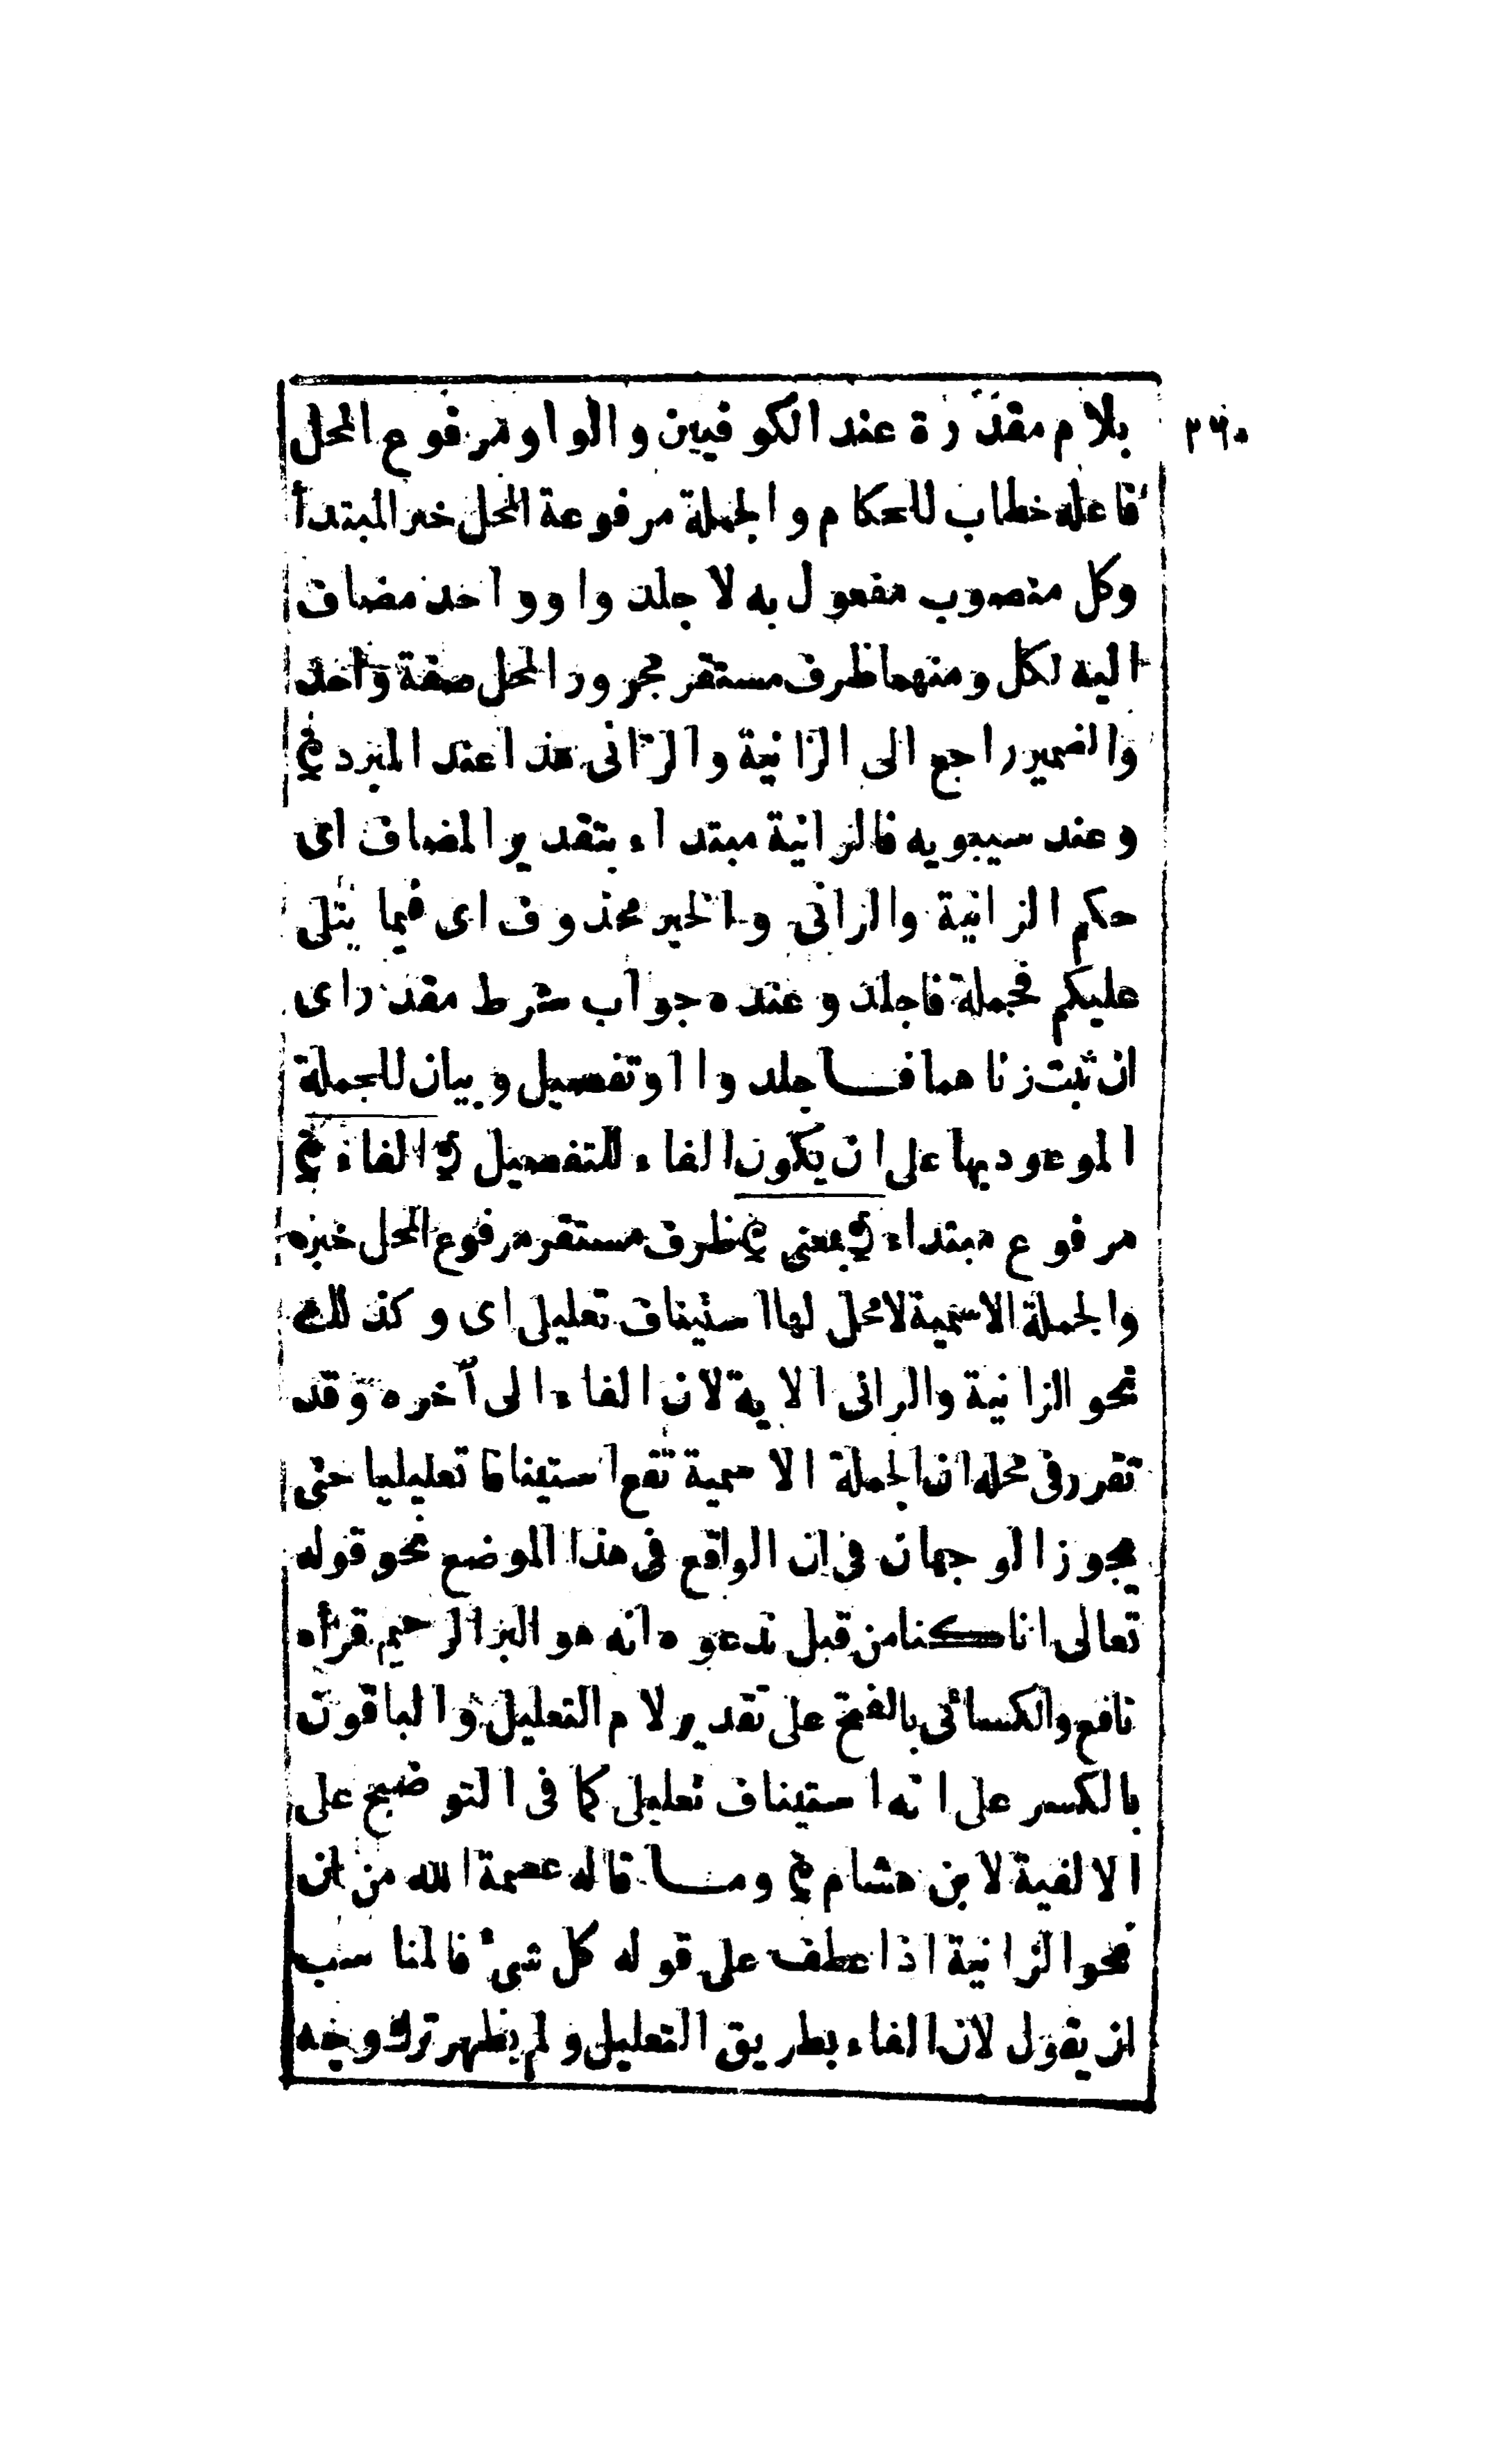 ٣٦٠
بلام مقدّرة عند الكوفيين والواو مرفوع المحل
فاعله خطاب للحكام والجملة مرفوعة المحل خبر المبتدأ
وكل منصوب مفعول به لاجلدوا وواحد مضاف
اليه لكل ومنهما ظرف مستقر مجرور المحل صفة واحد
والضمير راجع الى الزانية والزانى هذا عند المبرد ﴿
وعند سيبويه فالزانية مبتداء بتقدير المضاف اى
حكم الزانية والزانى والخبر محذوف اى فيما يتلى
عليكم فجملة فاجلدوا عنده جواب شرط مقدر اى
ان ثبت زناهما فاجلدوا او تفصيل وبيان للجملة
الموعود بها على ان يكون الفاء للتفصيل ﴾ الفاء ﴿
مرفوع مبتداء ﴾ بمعنى ﴿ ظرف مستقر مرفوع المحل خبره
والجملة الاسمية لا محل لها استيناف تعليلى اى وكذلك
نحو الزانية والزانى الاية لان الفاء الى آخره وقد
تقرر فى محله ان الجملة الاسمية تقع استينافا تعليليا حتى
يجوز الوجهان فى ان الواقع فى هذا الموضع نحو قوله
تعالى انا كنا من قبل ندعوه انه هو البر الرحيم قرأه
نافع والكسائى بالفتح على تقدير لام التعليل والباقون
بالكسر على انه استيناف تعليلى كما فى التوضيح على
الالفية لابن هشام ﴿ وما قاله عصمة الله من ان
نحو الزانية اذا عطف على قوله كل شئ فالمناسب
ان يقول لان الفاء بطريق التعليل ولم يظهر ترك وجه